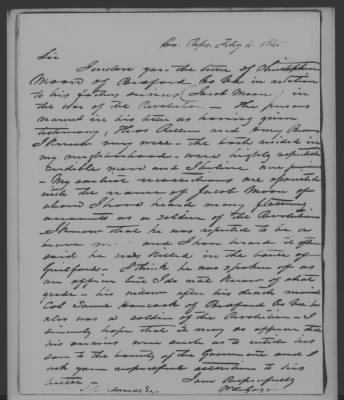 Ho. Reps. Feby 4. 1845
Sir
I enclose you the letter of Christopher
Moon of Bedford Co Va in relation
to his fathers services (Jacob Moon) in
the War of the Revolution — The persons
named in his letter as having given
testimony, Thos and
I knew very well — they both resided in
my neighborhood — were highly respectable
credible men and
— My earliest recollections are associated
with the name of Jacob Moon of
whom I have heard many
accounts as a soldier of the Revolution
I know that he was reputed to be a
brave man and I have heard it often
said he was killed in the battle of
Guilford — I think he was spoken of as
an officer but I do not know of what
grade — his widow after his death married
Col. of Bedford Co Va he
also was a soldier of the Revolution — I
sincerely hope that it may so appear that
his services were such as to entitle his
son to the bounty of the Government and I
ask your respectful attention to his
letter
I am Respectfully
Edwards Esq